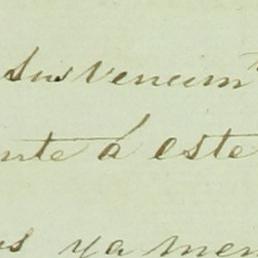 sus vencim
nte á este
s ya men